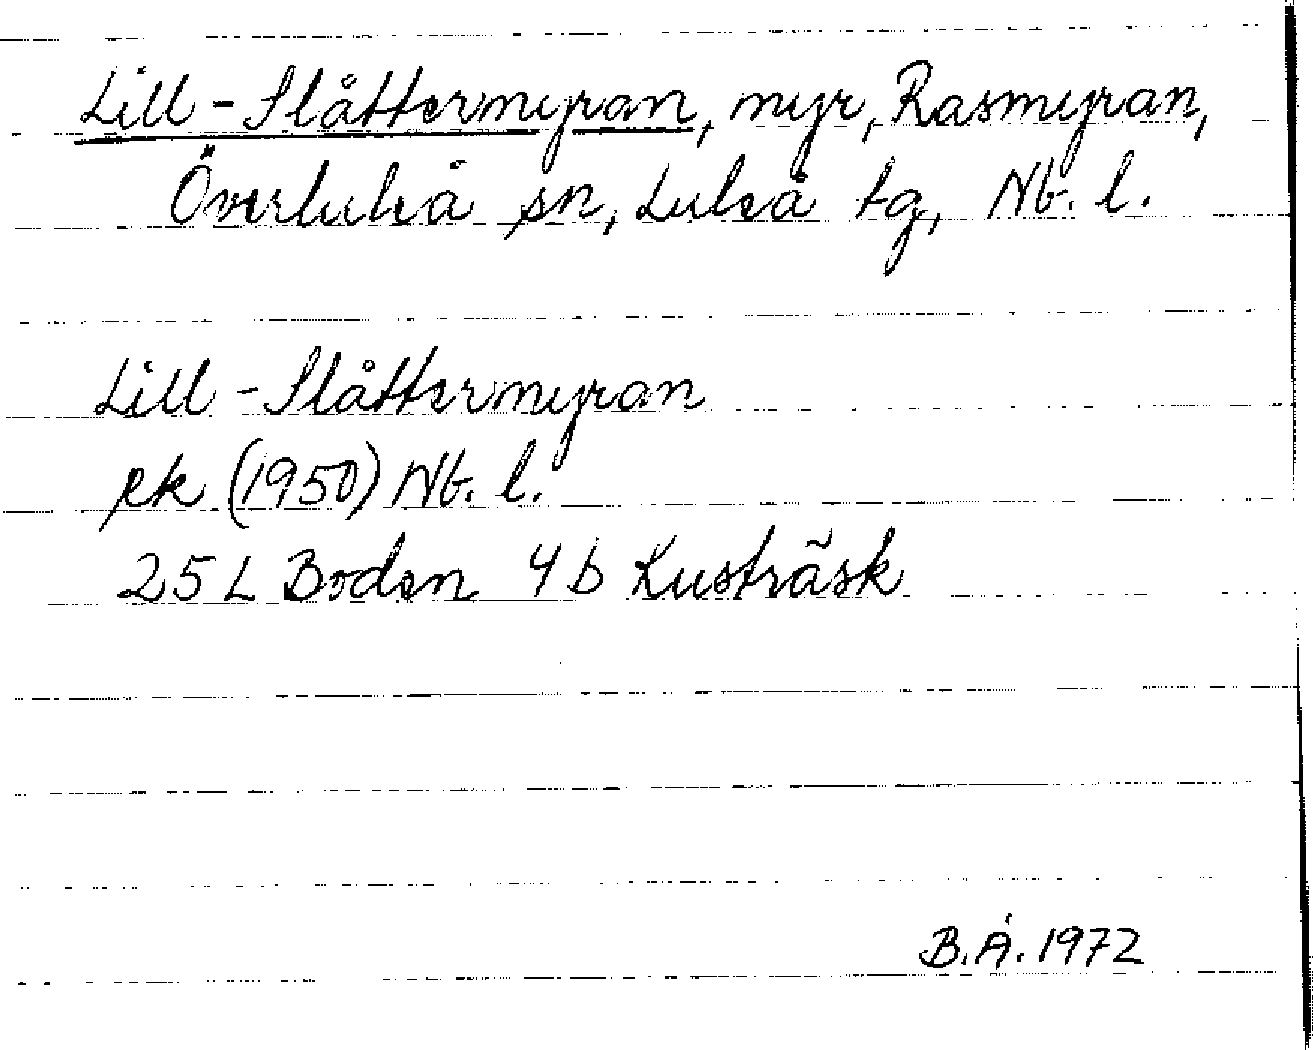 Lill-Slåttermyran, myr, Rasmyran,
Överluleå sn, Luleå tg, Nb. l.
Lill-Slåttermyran
rk (1950) Nb. l.
25 L Boden 4 b Kusträsk
B.Å. 1972